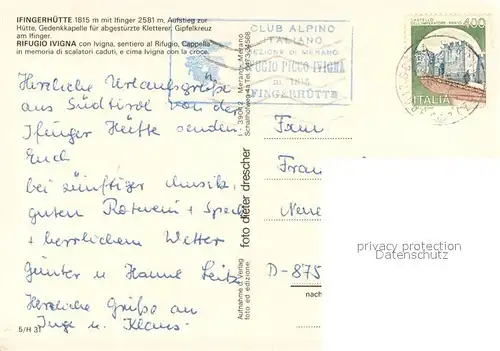 IFINGERHÜTTE 1815 m mit Ifinger 2581 m, Aufstieg zur
Hütte, Gedenkkapelle für abgestürzte Kletterer, Gipfelkreuz
am Ifinger.
RIFUGIO IVIGNA con Ivigna, sentiero al Rifugio, Cappella
in memoria di scalatori caduti, e cima Ivigna con la croce.
CLUB ALPINO
ITALIANO
SEZIONE DI MERANO
RIFUGIO PICCO IVIGNA
m. 1815
IFINGERHÜTTE
400
ITALIA
Herzliche Urlaubsgrüße
aus Südtirol von der
Ifinger Hütte senden
Euch
bei zünftiger Musik,
guten Rotwein + Speck
+ herrlichem Wetter
Günter u Hanne Seitz
Herzliche Grüße an
Inge u. Klaus
5/H 31
Aufnahme u. Verlag
foto ed edizione
foto dieter drescher
39012 Meran-Merano
Fam
Fran
Neue
D-875
nach
privacy protection
Datenschutz